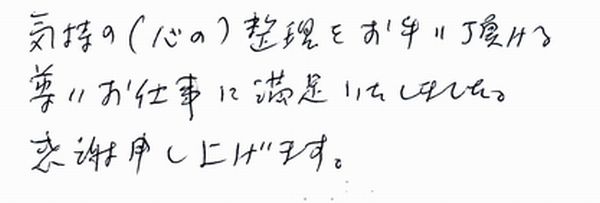 気持の(心の)整理をお手伝い頂ける
尊いお仕事に満足いたしました。
感謝申し上げます。